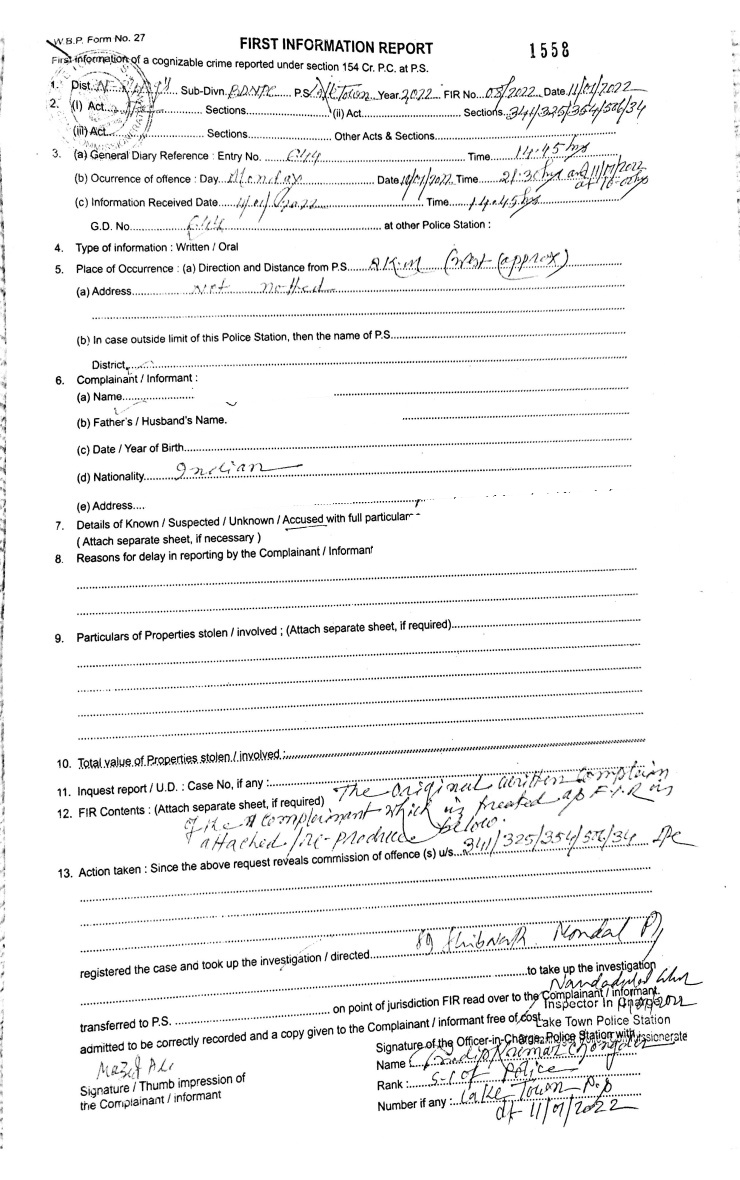 W.B.P. Form No. 27
FIRST INFORMATION REPORT
1558
First information of a cognizable crime reported under section 154 Cr. P.C. at P.S.
1. Dist. Sub-Divn. P.S. Lake Town Year 2022 FIR No. 05/2022 Date 11/01/2022
2. (I) Act Sections (ii) Act Sections 341/325/354/506/34
(iii) Act Sections Other Acts & Sections
3. (a) General Diary Reference : Entry No. 644 Time 14.45 hrs
(b) Ocurrence of offence : Day Monday Date 10/01/2022 Time 21.30 hrs and 11/01/2022
(c) Information Received Date 11/01/2022 Time 14.45 hrs
G.D. No 644 at other Police Station :
4. Type of information : Written / Oral
5. Place of Occurrence : (a) Direction and Distance from P.S. (West (approx)
(a) Address Not
(b) In case outside limit of this Police Station, then the name of P.S.
District
6. Complainant / Informant :
(a) Name
(b) Father's / Husband's Name.
(c) Date / Year of Birth
(d) Nationality Indian
(e) Address
7. Details of Known / Suspected / Unknown / Accused with full particular
( Attach separate sheet, if necessary )
8. Reasons for delay in reporting by the Complainant / Informant
9. Particulars of Properties stolen / involved ; (Attach separate sheet, if required)
10. Total value of Properties stolen / involved :
11. Inquest report / U.D. : Case No, if any :
12. FIR Contents : (Attach separate sheet, if required) The original written complain
of the complainant which is treated as F.I.R is
attached/re-produce below.
13. Action taken : Since the above request reveals commission of offence (s) u/s 341/325/354/506/34 IPC
registered the case and took up the investigation / directed Shibnath Mondal
to take up the investigation
transferred to P.S. on point of jurisdiction FIR read over to the Complainant / informant
Inspector In
admitted to be correctly recorded and a copy given to the Complainant / informant free of cost
Lake Town Police Station
Signature of the Officer-in-Charge, Police Station with
Signature / Thumb impression of
the Complainant / informant
Name : Kumar
Rank : S.I of Police
Number if any : Lake Town P.S
dt 11/01/2022